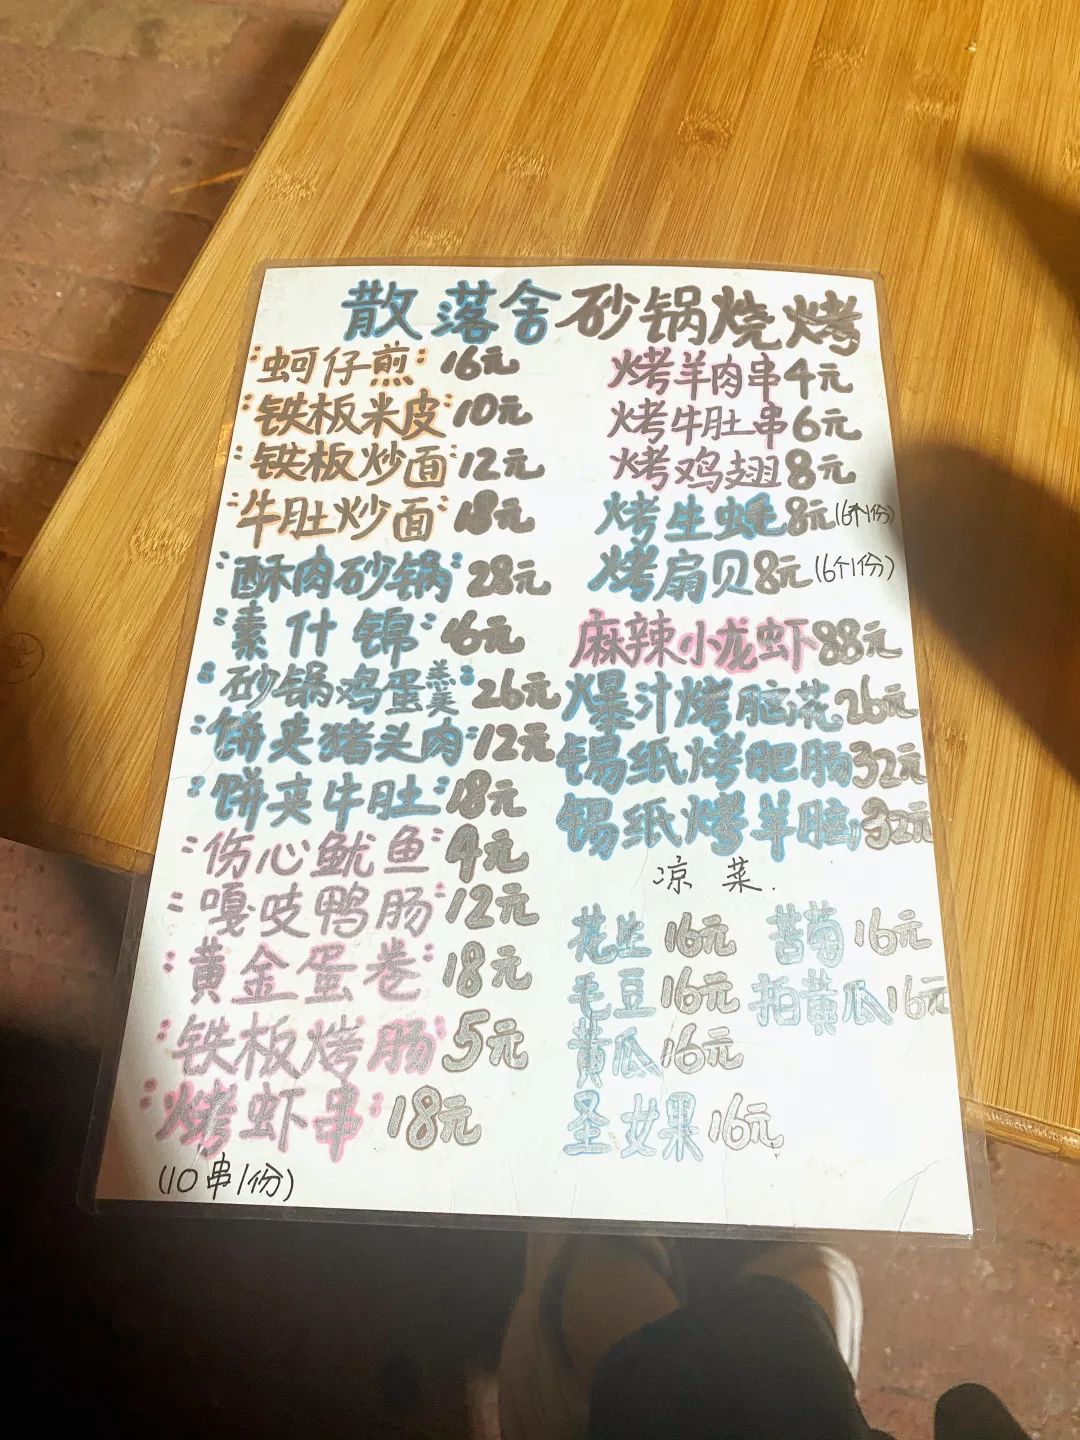 散落舍砂锅烧烤
蚵仔煎 16元
铁板米皮 10元
铁板炒面 12元
牛肚炒面 18元
酥肉砂锅 28元
素什锦 16元
砂锅鸡蛋羹 26元
饼夹猪头肉 12元
饼夹牛肚 18元
伤心鱿鱼 4元
嘎吱鸭肠 12元
黄金蛋卷 18元
铁板烤肠 5元
烤虾串 18元
(10串1份)
烤羊肉串 4元
烤牛肚串 6元
烤鸡翅 8元
烤生蚝 8元 (6个1份)
烤扇贝 8元 (6个1份)
麻辣小龙虾 88元
爆汁烤脑花 26元
锡纸烤肥肠 32元
锡纸烤羊脑 32元
凉菜.
花生 16元 苦菊 16元
毛豆 16元 拍黄瓜 16元
黄瓜 16元
圣女果 16元